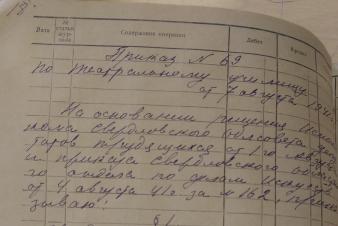 Дата
№ статьи журнала
Содержание операции
Дебет
Кредит
Приказ № 69
по театральному училищу
от 7 августа 194
На основании решения Испол
кома Свердловского Облсовета
татов трудящихся от 1-го
и приказа Свердловского
го отдела по делам Искусств
от 4 августа 41 г. за № 162, прика
зываю:
§1